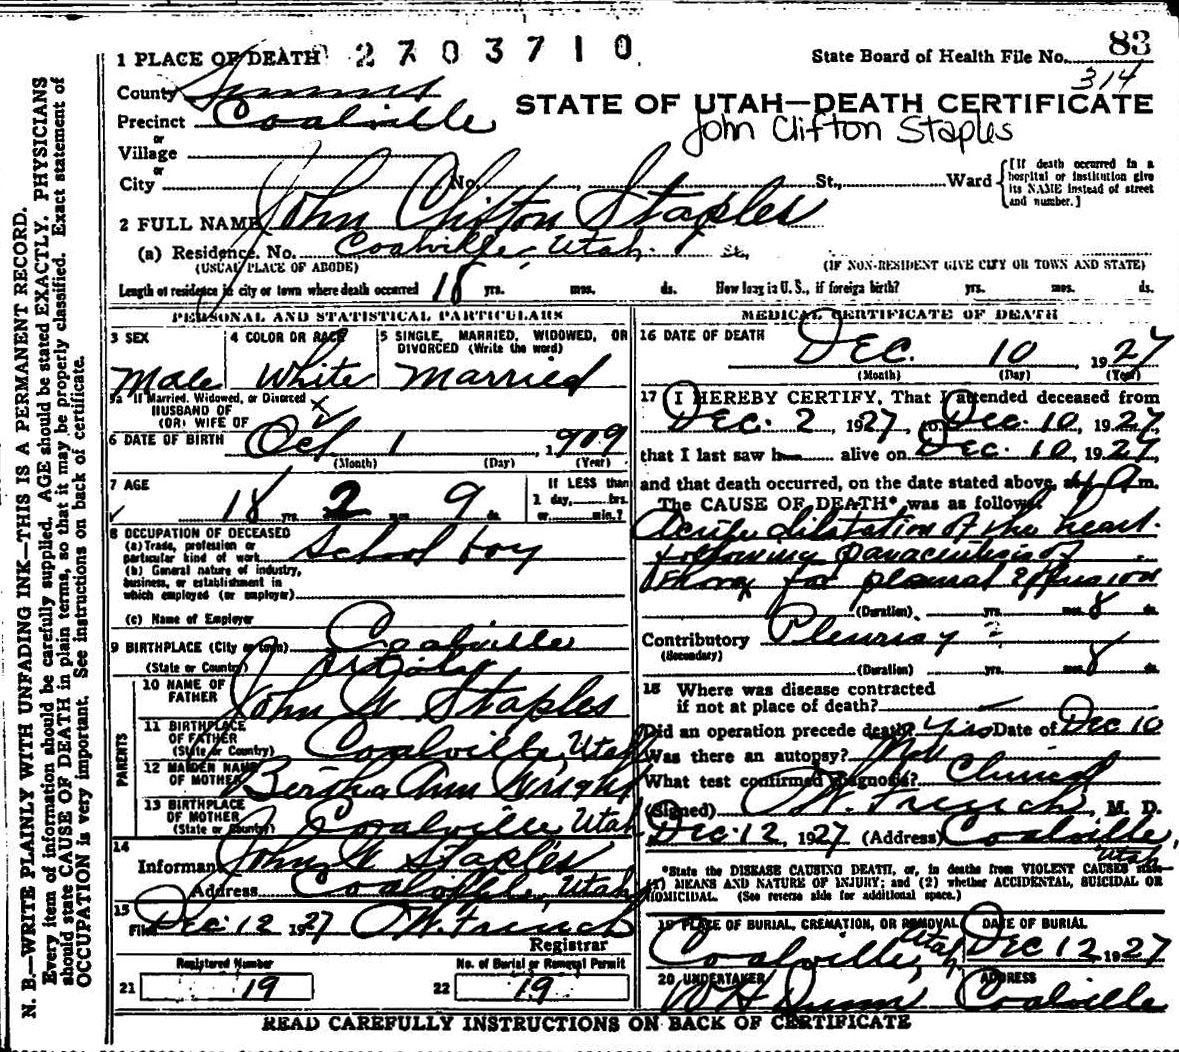 1 PLACE OF DEATH 2703710 State Board of Health File No. 83
314
County Summit
STATE OF UTAH—DEATH CERTIFICATE
Precinct Coalville
John Clifton Staples
or
Village
or
City No. St., Ward
[If death occurred in a hospital or institution give its NAME instead of street and number.]
2 FULL NAME John Clifton Staples
(a) Residence. No. Coalville, Utah. St.,
(USUAL PLACE OF ABODE) (IF NON-RESIDENT GIVE CITY OR TOWN AND STATE)
Length of residence in city or town where death occurred 18 yrs. mos. ds. How long in U. S., if foreign birth? yrs. mos. ds.
PERSONAL AND STATISTICAL PARTICULARS
3 SEX
Male
4 COLOR OR RACE
White
5 SINGLE, MARRIED, WIDOWED, OR
DIVORCED (Write the word)
Married
5a If Married, Widowed, or Divorced
HUSBAND OF
(OR) WIFE OF
6 DATE OF BIRTH Oct 1, 1909
(Month) (Day) (Year)
7 AGE
18 yrs. 2 mos. 9 ds.
If LESS than
1 day, hrs.
or min.?
8 OCCUPATION OF DECEASED
(a) Trade, profession or
particular kind of work School boy
(b) General nature of industry,
business, or establishment in
which employed (or employer)
(c) Name of Employer
9 BIRTHPLACE (City or town) Coalville
(State or Country)
PARENTS
10 NAME OF
FATHER John W Staples
11 BIRTHPLACE
OF FATHER
(State or Country) Coalville, Utah
12 MAIDEN NAME
OF MOTHER Bertha Ann Wright
13 BIRTHPLACE
OF MOTHER
(State or Country) Coalville Utah
14
Informant John W Staples
Address Coalville, Utah
15
Filed Dec 12 1927 O.W. French
Registrar
Registered Number No. of Burial or Removal Permit
21 19 22 19
MEDICAL CERTIFICATE OF DEATH
16 DATE OF DEATH
Dec. 10 1927
(Month) (Day) (Year)
17 I HEREBY CERTIFY, That I attended deceased from
Dec. 2, 1927, to Dec. 10, 1927,
that I last saw h alive on Dec. 10, 1927,
and that death occurred, on the date stated above, at 4 A m.
The CAUSE OF DEATH* was as follows:
Acute dilitation of the heart.
following paracentesis of
thorax for pleural effusion
(Duration) yrs. mos. 8 ds.
Contributory Pleurisy
(Secondary)
(Duration) yrs. mos. 8 ds.
18 Where was disease contracted
if not at place of death?
Did an operation precede death? Yes Date of Dec 10
Was there an autopsy?
What test confirmed diagnosis? Clinical
(Signed) O.W. French, M. D.
Dec. 12, 1927 (Address) Coalville,
Utah
*State the DISEASE CAUSING DEATH, or, in deaths from VIOLENT CAUSES state
(1) MEANS AND NATURE OF INJURY; and (2) whether ACCIDENTAL, SUICIDAL OR
HOMICIDAL. (See reverse side for additional space.)
19 PLACE OF BURIAL, CREMATION, OR REMOVAL DATE OF BURIAL
Coalville, Utah, Dec 12 1927
20 UNDERTAKER ADDRESS
W H Dunn Coalville
READ CAREFULLY INSTRUCTIONS ON BACK OF CERTIFICATE
N. B.—WRITE PLAINLY WITH UNFADING INK—THIS IS A PERMANENT RECORD.
Every item of information should be carefully supplied. AGE should be stated EXACTLY. PHYSICIANS
should state CAUSE OF DEATH in plain terms, so that it may be properly classified. Exact statement of
OCCUPATION is very important. See instructions on back of certificate.